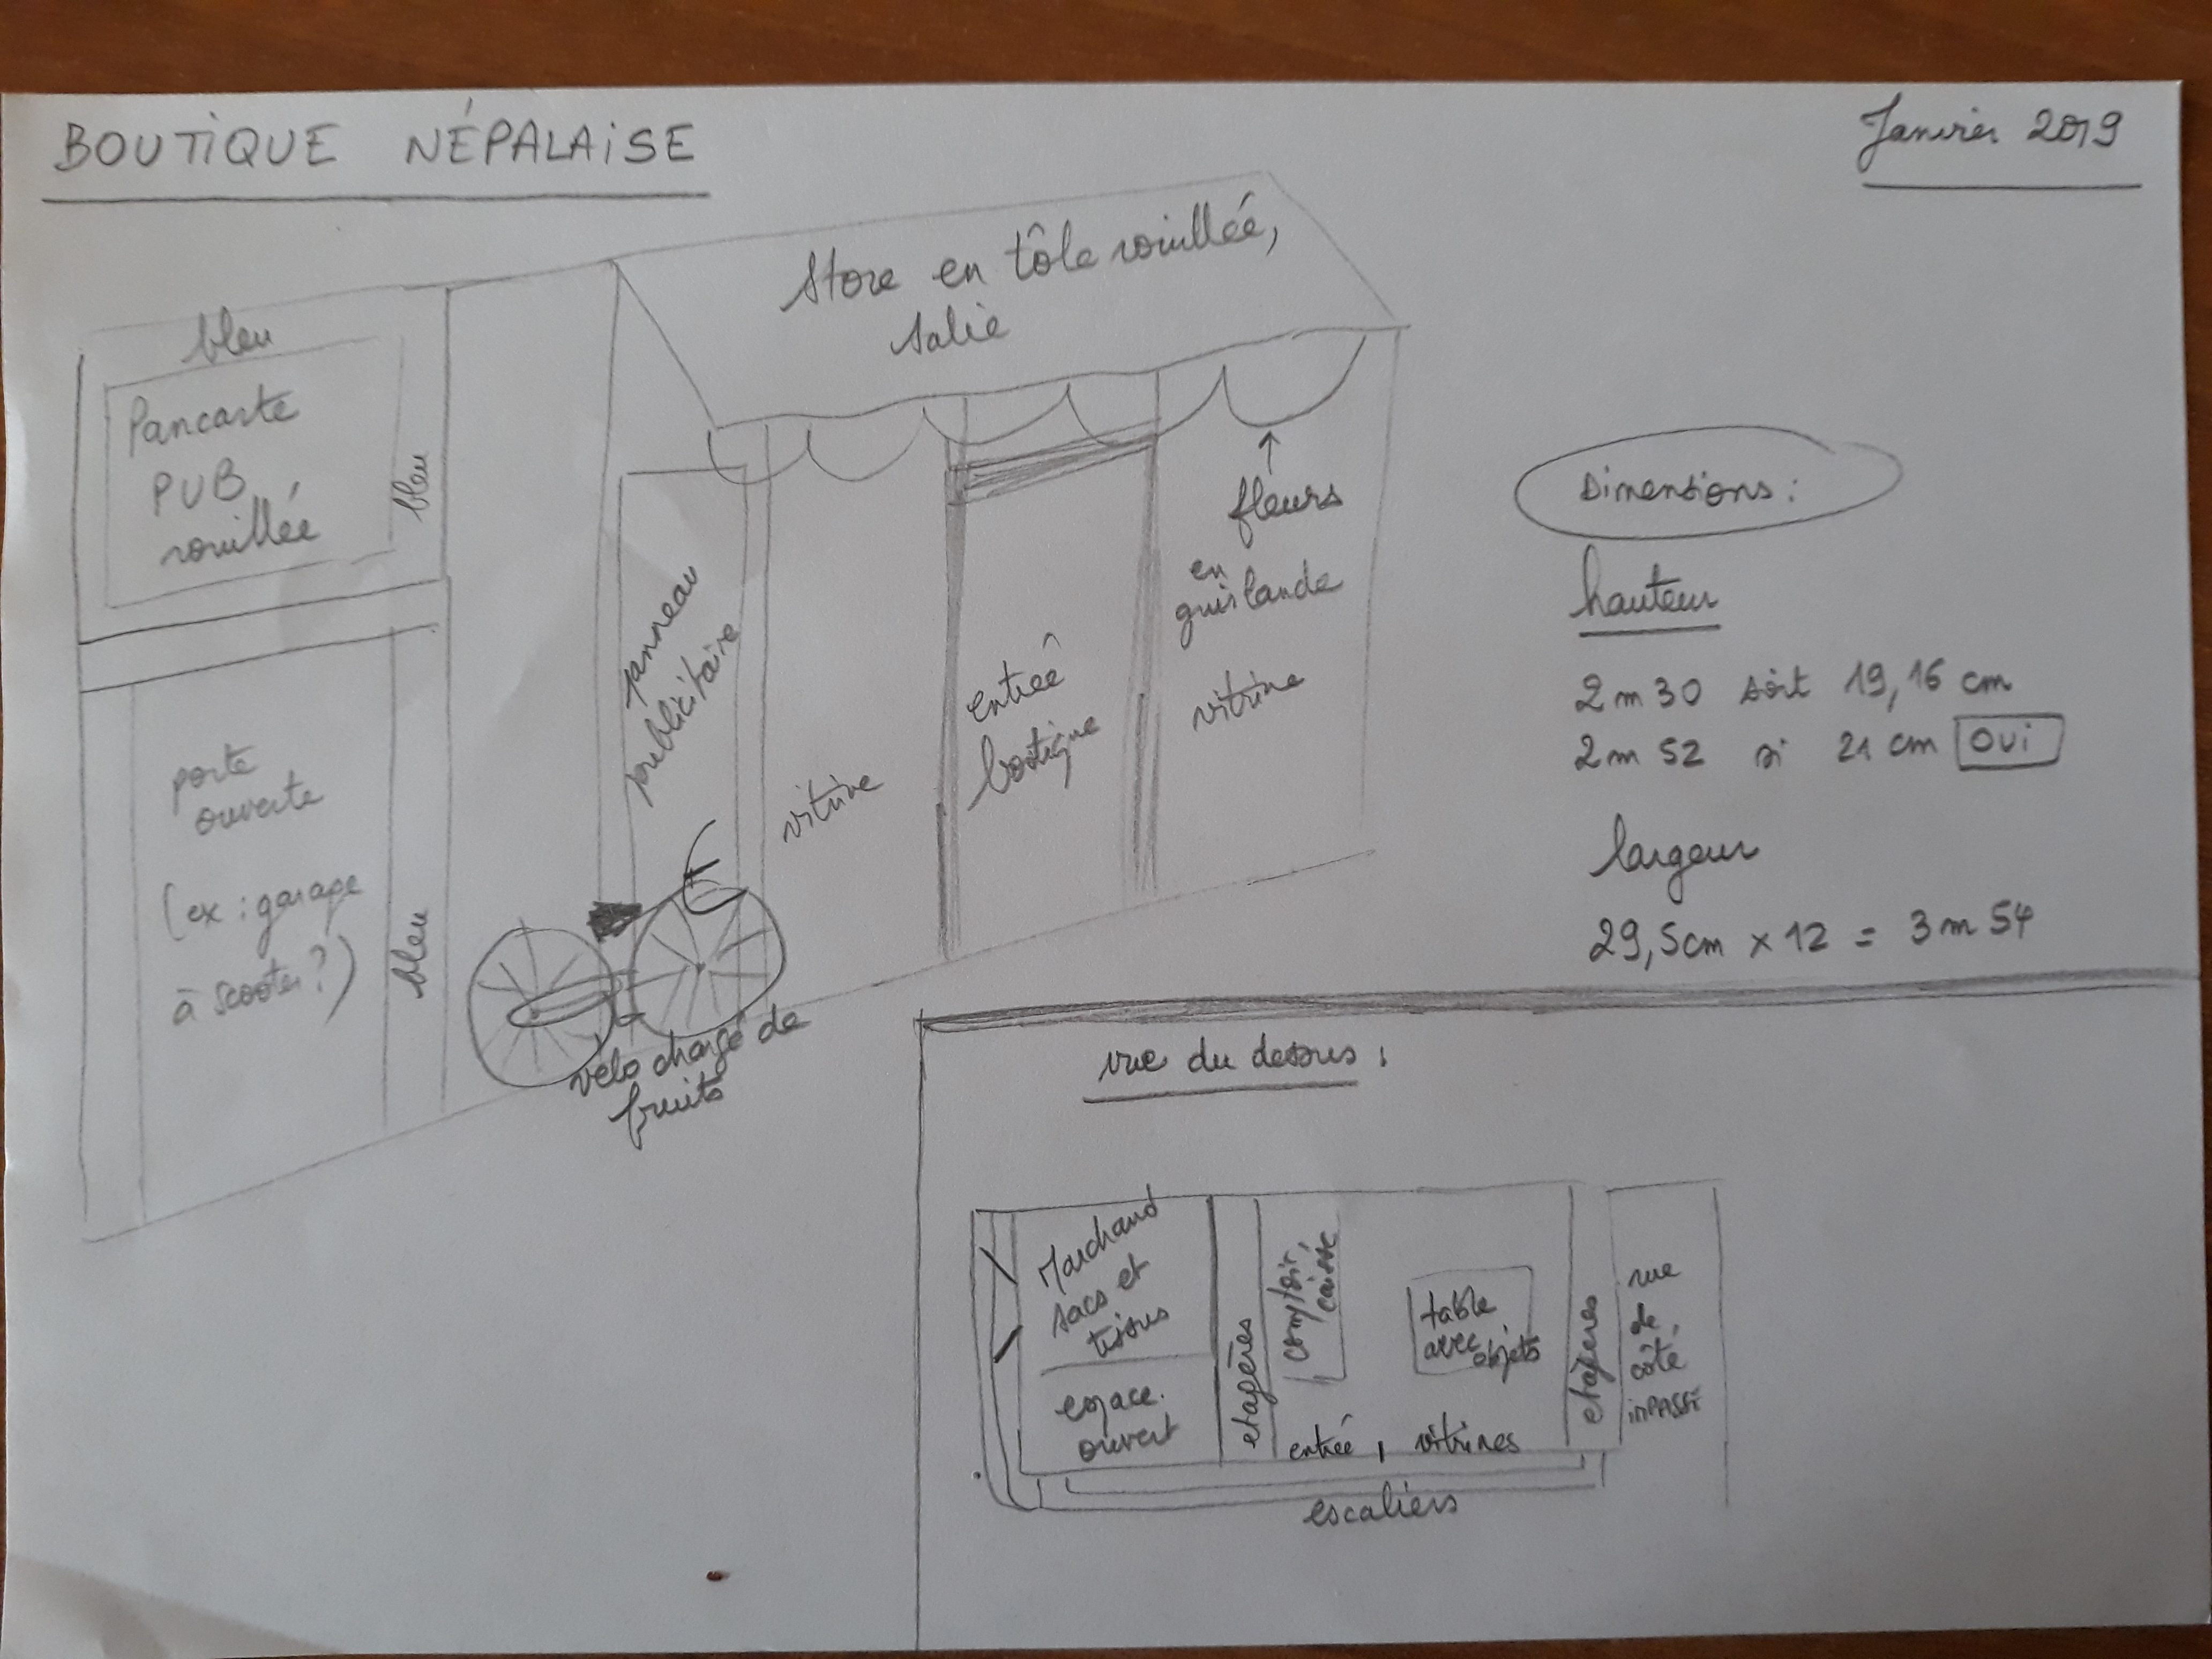 BOUTIQUE NÉPALAISE
Janvier 2019
Store en tôle rouillée,
salie
bleu
Pancarte
PUB
rouillée
bleu
porte
ouverte
(ex : garage
à scooter ?)
bleu
panneau
publicitaire
vitrine
entrée
boutique
fleurs
en
guirlande
vitrine
vélo chargé de
fruits
Dimensions :
hauteur
2 m 30 soit 19,16 cm
2 m 52 si 21 cm OUI
largeur
29,5cm x 12 = 3 m 54
vue du dessus :
Marchand
sacs et
tissus
espace
ouvert
etagères
comptoir,
caisse
table
avec objets
entrée, vitrines
etagères
rue
de
côté
imPASSE
escaliers